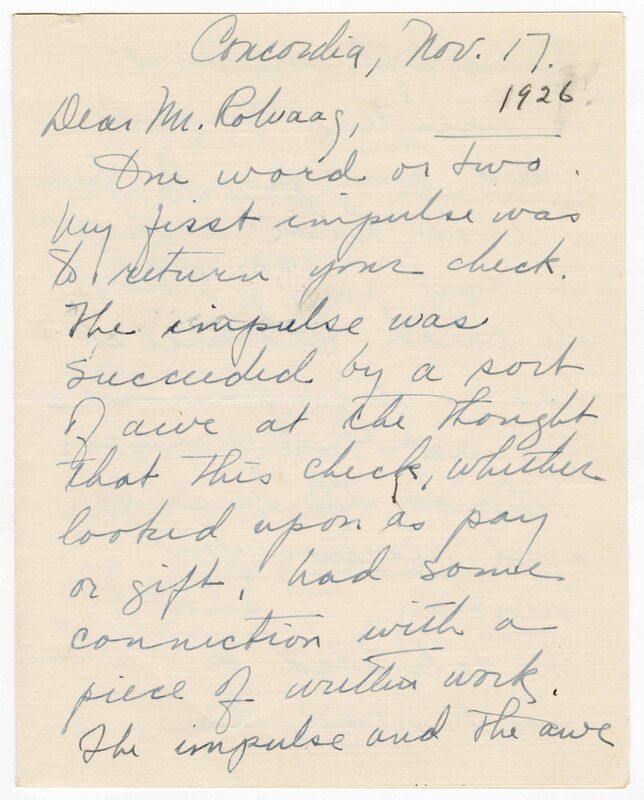 Concordia, Nov. 17.
1926.
Dear Mr. Rolvaag,
One word or two.
My first impulse was
to return your check.
The impulse was
succeeded by a sort
of awe at the thought
that this check, whether
looked upon as pay
or gift, had some
connection with a
piece of written work.
The impulse and the awe